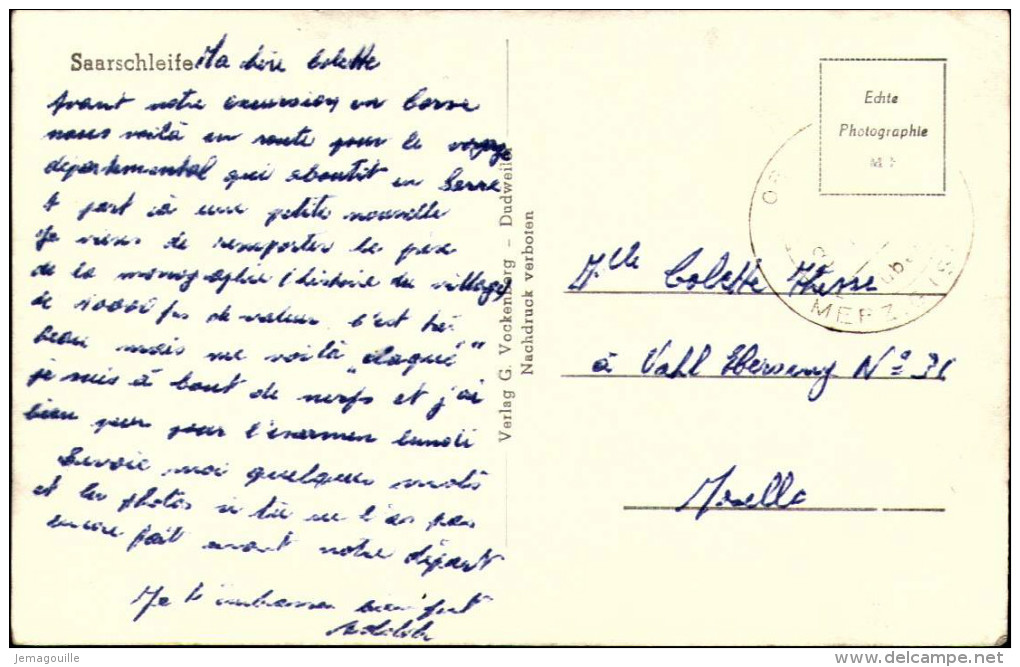 Saarschleife
Ma chère Colette
Avant notre excursion en Corse
nous voilà en route pour le voyage
départemental qui aboutit en Sarre
A part ça une petite nouvelle
Je viens de remporter le prix
de la monographie (histoire du village)
de 10000 frs de valeur. C'est très
beau mais me voilà "claqué"
je suis à bout de nerfs et j'ai
bien peur pour l'examen lundi
Envoie moi quelques mots
et les photos si tu ne l'as pas
encore fait avant notre départ
Je t'embrasse bien fort
Verlag G. Vockenberg – Dudweiler
Nachdruck verboten
Echte
Photographie
MERZ
Mlle Colette Thesse
à Vahl Ebersing N° 31
Moselle
jemagouille
www.delcampe.net